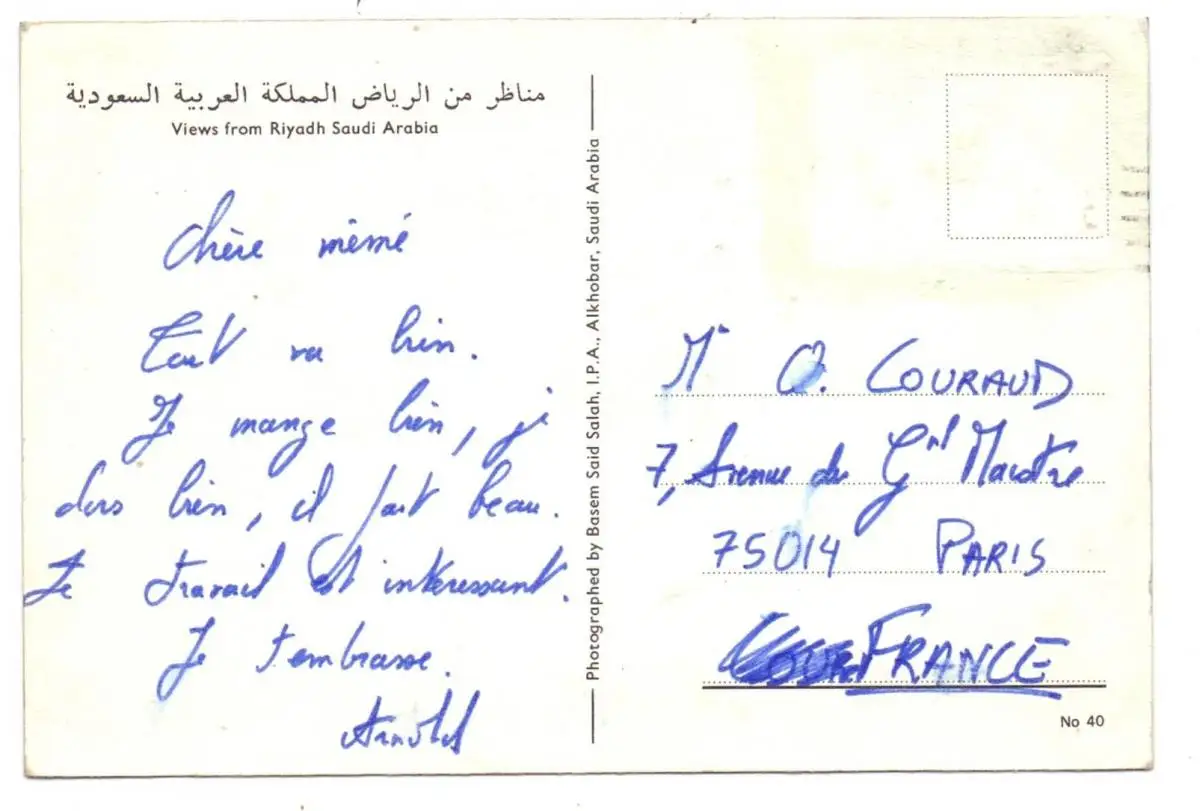 مناظر من الرياض المملكة العربية السعودية
Views from Riyadh Saudi Arabia
Chère mémé
Tout va bien.
Je mange bien, je
dors bien, il fait beau.
Le travail est intéressant.
Je t'embrasse.
Arnold
Photographed by Basem Said Salah, I.P.A., Alkhobar, Saudi Arabia
O. COURAUD
7, Avenue du Gnl Maistre
75014 PARIS
FRANCE
No 40